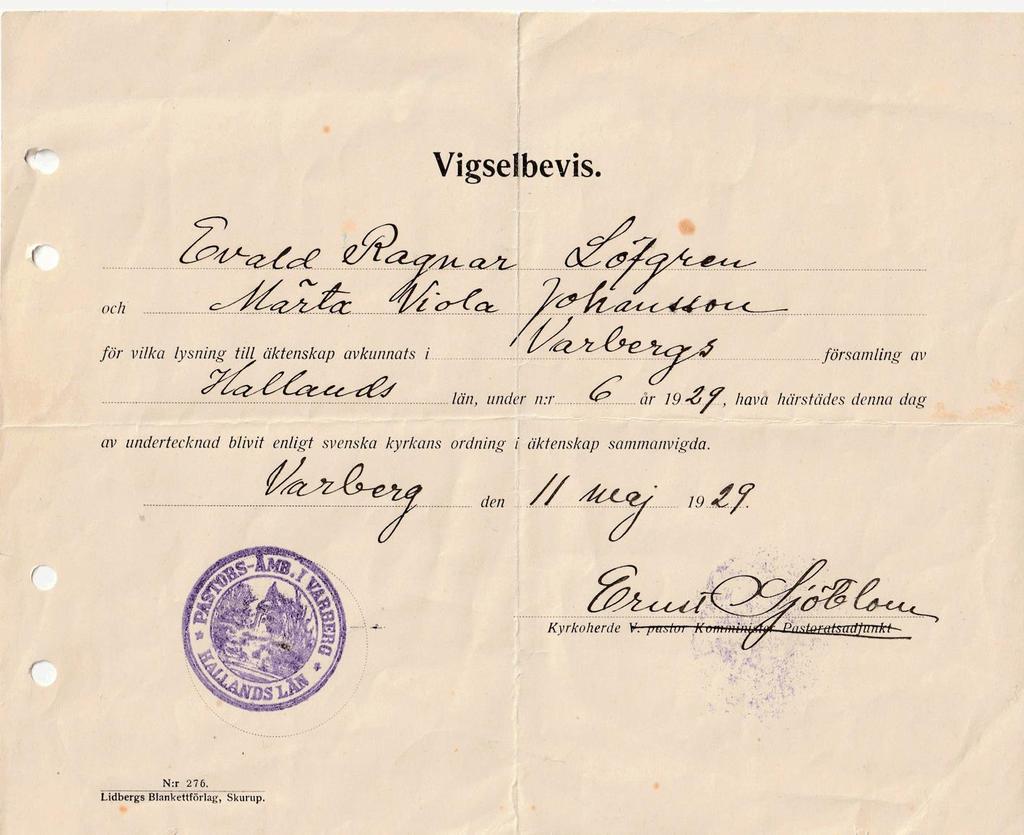 Vigselbevis.
Evald Ragnar Löfgren
och Märta Viola Johansson
för vilka lysning till äktenskap avkunnats i Varbergs församling av
Hallands län, under n:r 6 år 1929, hava härstädes denna dag
av undertecknad blivit enligt svenska kyrkans ordning i äktenskap sammanvigda.
Varberg den 11 maj 1929.
PASTORS-ÄMB. I VARBERG
HALLANDS LÄN
Ernst Sjöblom
Kyrkoherde V. pastor Komminister Pastoratsadjunkt
N:r 276.
Lidbergs Blankettförlag, Skurup.